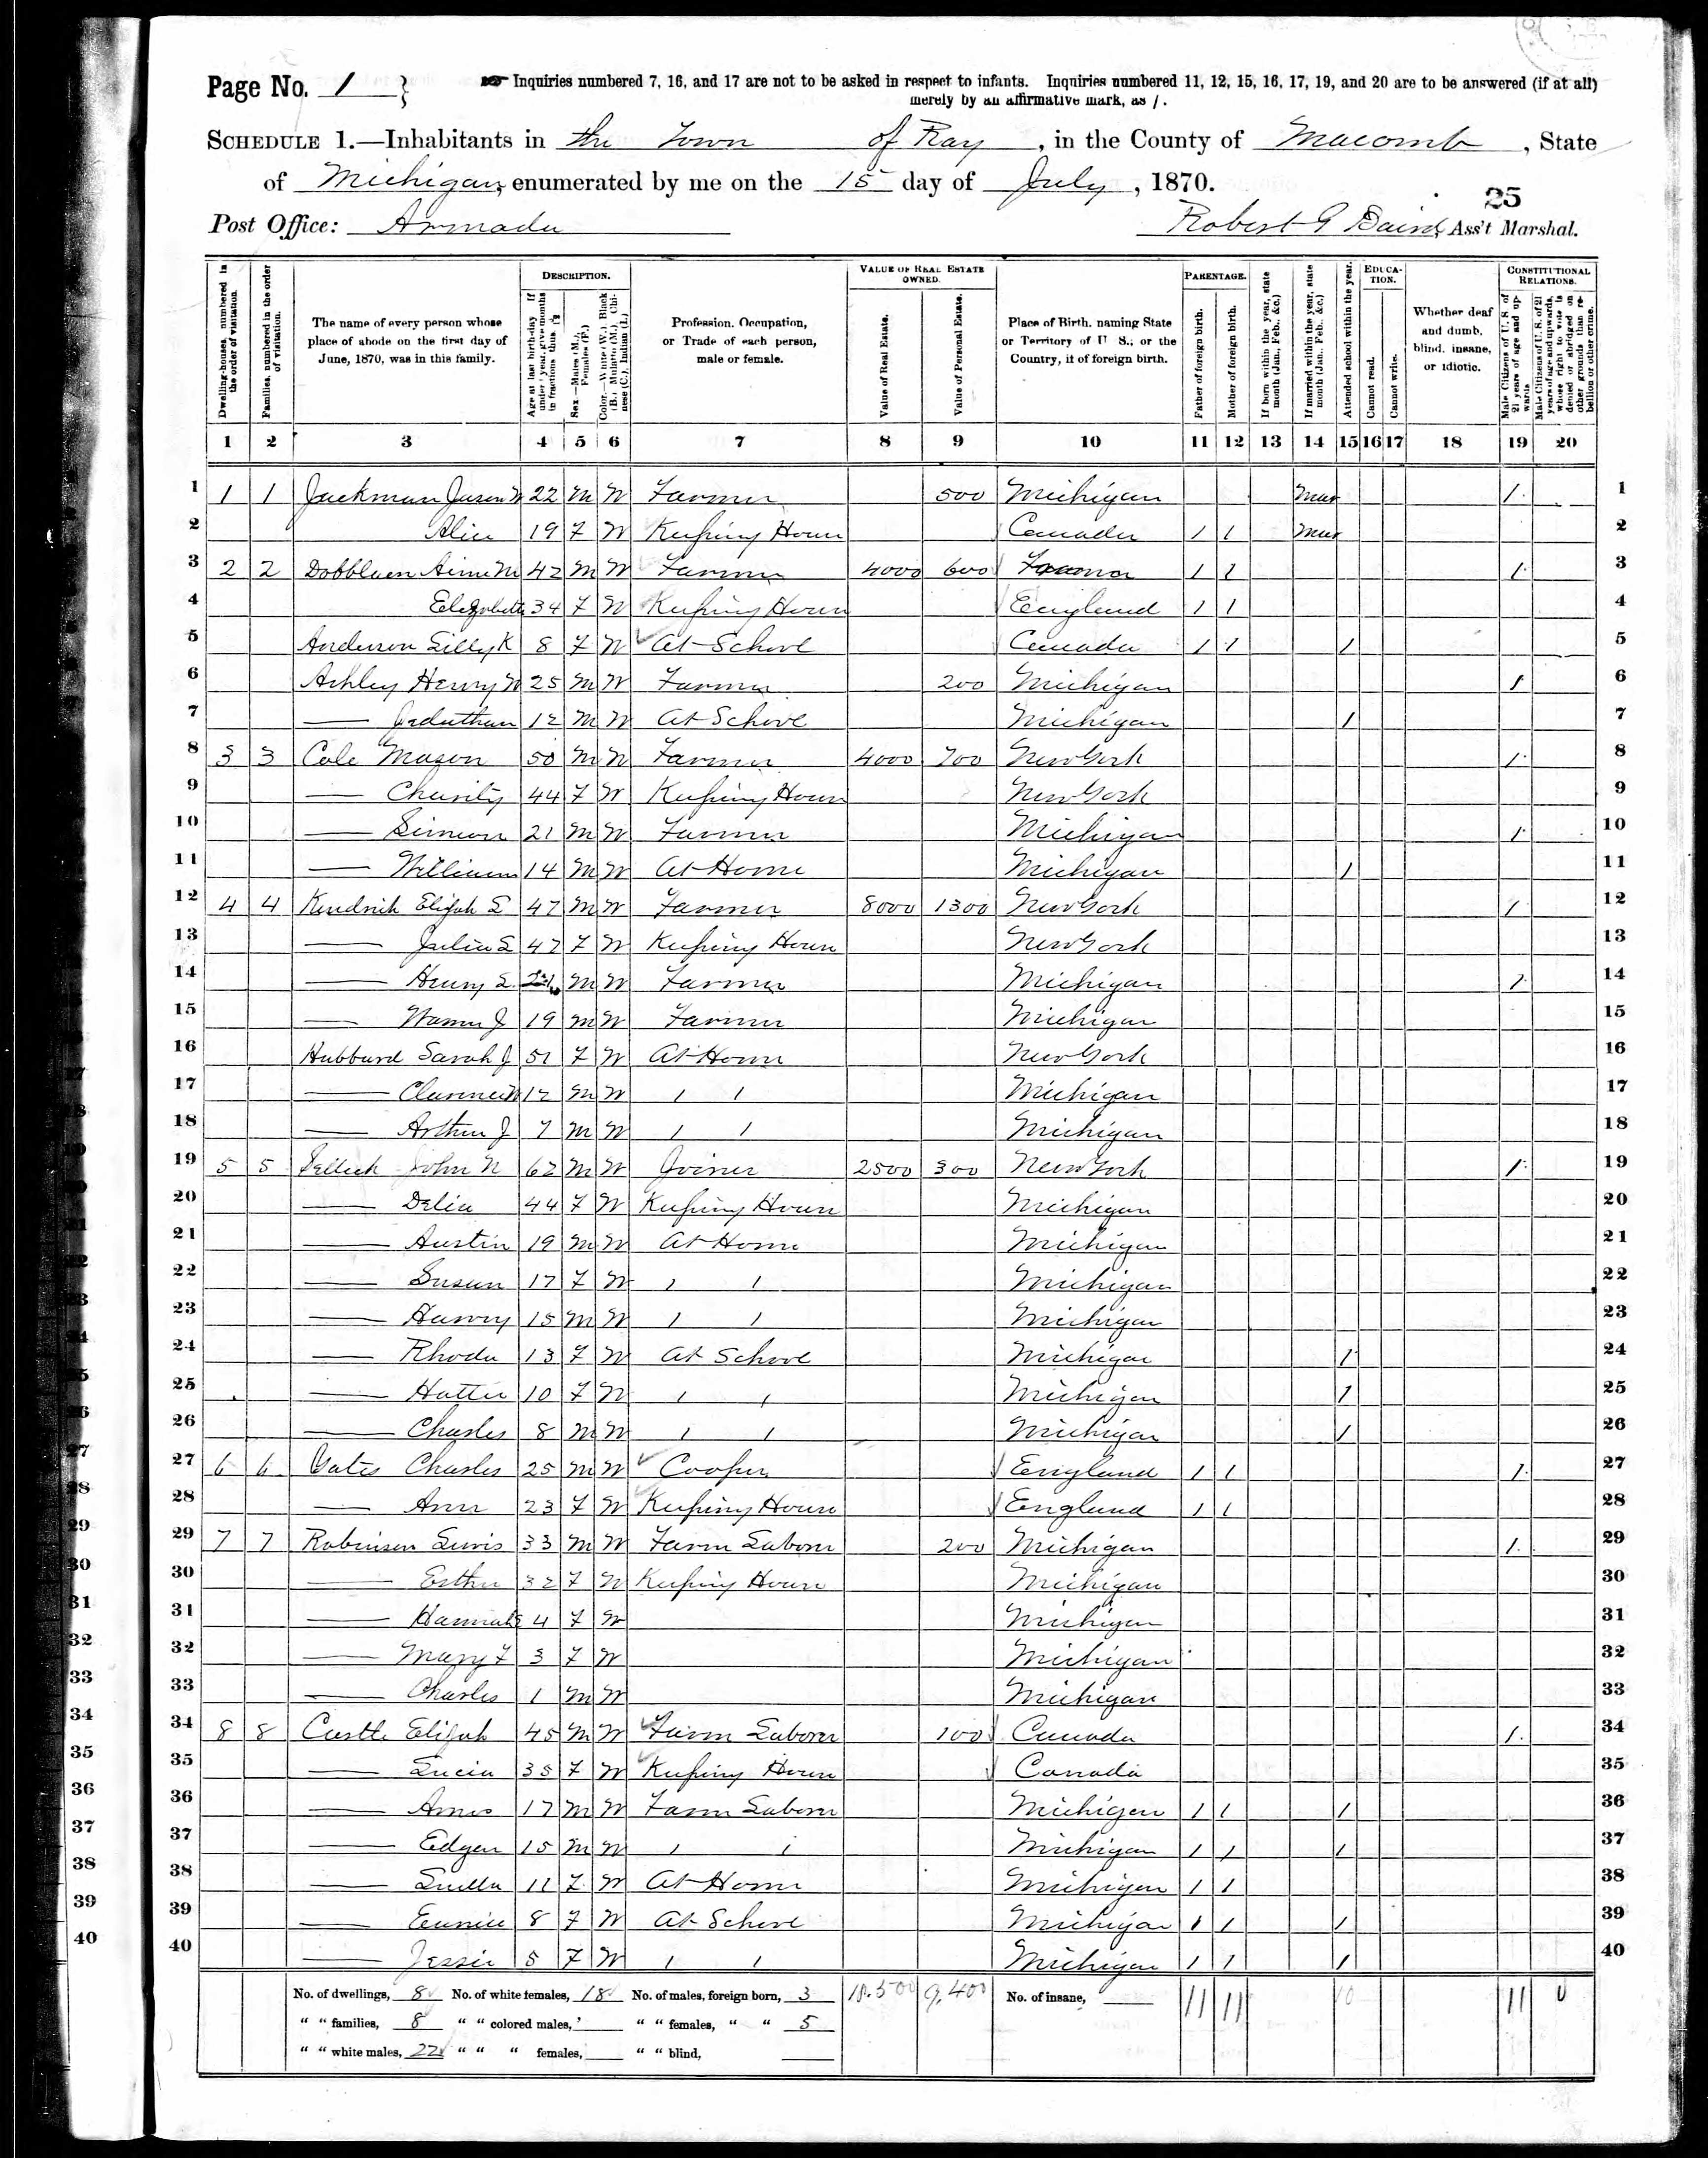 Page No. 1 } Inquiries numbered 7, 16, and 17 are not to be asked in respect to infants. Inquiries numbered 11, 12, 15, 16, 17, 19, and 20 are to be answered (if at all)
merely by an affirmative mark, as /.
SCHEDULE 1.—Inhabitants in the Town of Ray, in the County of Macomb, State
of Michigan, enumerated by me on the 15 day of July, 1870.
25
Post Office: Armada Robert G Ass't Marshal.
Dwelling-houses, numbered in the order of visitation.
Families, numbered in the order of visitation.
The name of every person whose place of abode on the first day of June, 1870, was in this family.
DESCRIPTION.
Age at last birth-day. If under 1 year, give months in fractions, thus
Sex.—Males (M.), Females (F.)
Color.—White (W.), Black (B.), Mulatto (M.), Chinese (C.), Indian (I.)
Profession, Occupation, or Trade of each person, male or female.
VALUE OF REAL ESTATE OWNED.
Value of Real Estate.
Value of Personal Estate.
Place of Birth, naming State or Territory of U. S.; or the Country, if of foreign birth.
PARENTAGE.
Father of foreign birth.
Mother of foreign birth.
If born within the year, state month (Jan., Feb., &c.)
If married within the year, state month (Jan., Feb., &c.)
Attended school within the year.
EDUCATION.
Cannot read.
Cannot write.
Whether deaf and dumb, blind, insane, or idiotic.
CONSTITUTIONAL RELATIONS.
Male Citizens of U. S. of 21 years of age and upwards
Male Citizens of U. S. of 21 years of age and upwards, whose right to vote is denied or abridged on other grounds than rebellion or other crime.
1 2 3 4 5 6 7 8 9 10 11 12 13 14 15 16 17 18 19 20
1 1 1 Jackman Jason W 22 M W Farmer 500 Michigan Mar 1 1
2 Alice 19 F W Keeping House Canada 1 1 Mar 2
3 2 2 M 42 M W Farmer 4000 600 1 1 1 3
4 Elizabeth 34 F W Keeping House England 1 1 4
5 Anderson Lilly K 8 F W At School Canada 1 1 1 5
6 Ashley Henry W 25 M W Farmer 200 Michigan 1 6
7 — Jeduthan 12 M W At School Michigan 1 7
8 3 3 Cole Mason 50 M W Farmer 4000 700 New York 1 8
9 — Charity 44 F W Keeping House New York 9
10 — Simeon 21 M W Farmer Michigan 1 10
11 — William 14 M W At Home Michigan 1 11
12 4 4 Kendrick Elijah S 47 M W Farmer 8000 1300 New York 1 12
13 — Julia S 47 F W Keeping House New York 13
14 — Henry S. M W Farmer Michigan 1 14
15 — Warner J 19 M W Farmer Michigan 15
16 Hubbard Sarah J 51 F W At Home New York 16
17 — Clarence W 12 M W 1 1 Michigan 17
18 — Arthur J 7 M W 1 1 Michigan 18
19 5 5 Selleck John N 62 M W Joiner 2500 300 New York 1 19
20 — Delia 44 F W Keeping House Michigan 20
21 — Austin 19 M W At Home Michigan 21
22 — Susan 17 F W 1 1 Michigan 22
23 — Harvey 15 M W 1 1 Michigan 23
24 — Rhoda 13 F W At School Michigan 1 24
25 — Hattie 10 F W 1 1 Michigan 1 25
26 — Charles 8 M W 1 1 Michigan 1 26
27 6 6 Gates Charles 25 M W Cooper England 1 1 1 27
28 — Ann 23 F W Keeping House England 1 1 28
29 7 7 Robinson Lewis 33 M W Farm Laborer 200 Michigan 1 29
30 — Esther 32 F W Keeping House Michigan 30
31 — Hannah E 4 F W Michigan 31
32 — Mary F 3 F W Michigan 32
33 — Charles 1 M W Michigan 33
34 8 8 Castle Elijah 45 M W Farm Laborer 100 Canada 1 34
35 — Lucia 35 F W Keeping House Canada 35
36 — Amos 17 M W Farm Laborer Michigan 1 1 1 36
37 — Edgar 15 M W 1 1 Michigan 1 1 1 37
38 — Luella 11 F W At Home Michigan 1 1 38
39 — Eunice 8 F W At School Michigan 1 1 1 39
40 — Jessie 5 F W 1 1 Michigan 1 1 1 40
No. of dwellings, 8 No. of white females, 18 No. of males, foreign born, 3 18.500 9.400 No. of insane, 11 11 10 11 0
" " families, 8 " " colored males, " " females, " " 5
" " white males, 22 " " " females, " " blind,